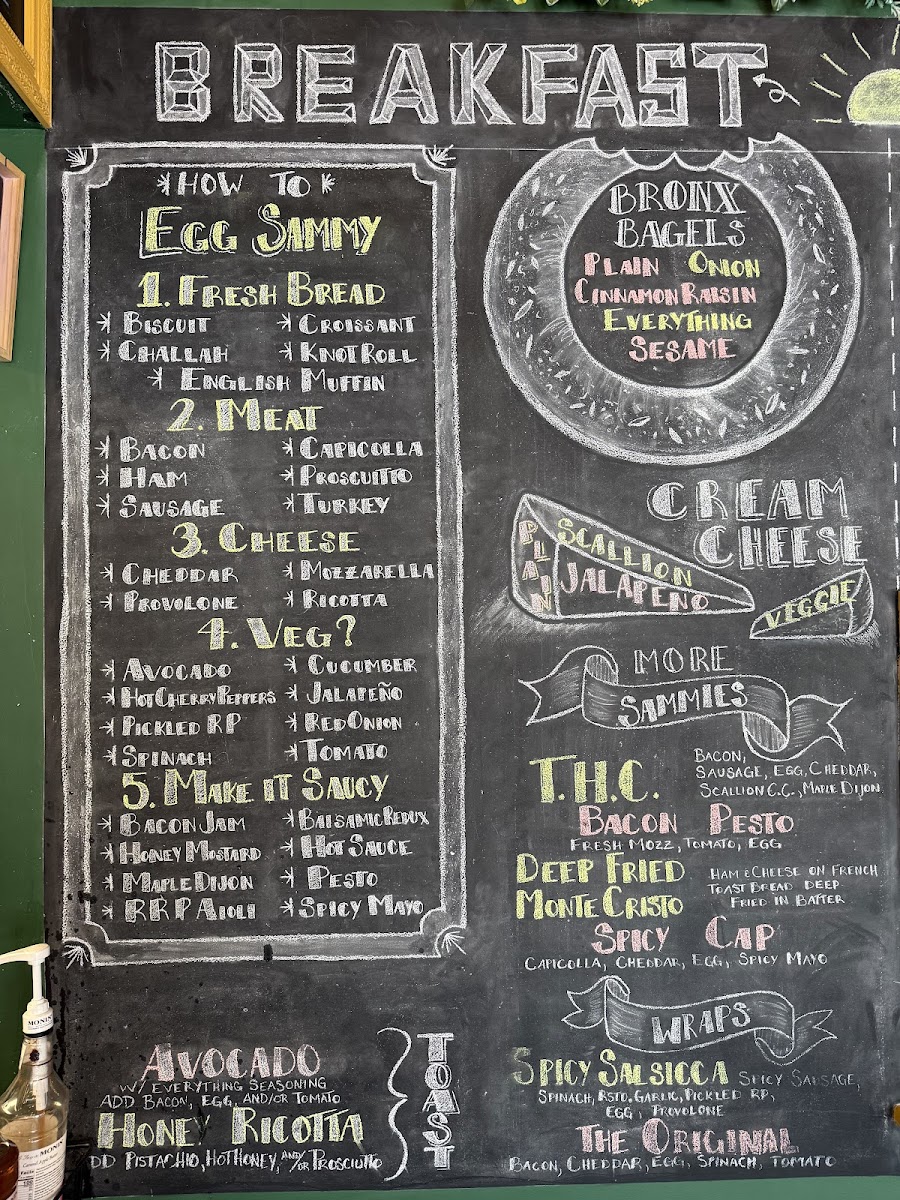 BREAKFAST
HOW TO
EGG SAMMY
1. FRESH BREAD
BISCUIT
CROISSANT
CHALLAH
KNOT ROLL
ENGLISH MUFFIN
2. MEAT
BACON
CAPICOLLA
HAM
PROSCUITTO
SAUSAGE
TURKEY
3. CHEESE
CHEDDAR
MOZZARELLA
PROVOLONE
RICOTTA
4. VEG?
AVOCADO
CUCUMBER
HOT CHERRY PEPPERS
JALAPEÑO
PICKLED RP
RED ONION
SPINACH
TOMATO
5. MAKE IT SAUCY
BACON JAM
BALSAMIC REDUX
HONEY MOSTARD
HOT SAUCE
MAPLE DIJON
PESTO
RRP AIOLI
SPICY MAYO
AVOCADO
W/ EVERYTHING SEASONING
ADD BACON, EGG, AND/OR TOMATO
HONEY RICOTTA
DD PISTACHIO, HOT HONEY, AND/OR PROSCIUTTO
TOAST
BRONX
BAGELS
PLAIN ONION
CINNAMON RAISIN
EVERYTHING
SESAME
CREAM
CHEESE
PLAIN
SCALLION
JALAPENO
VEGGIE
MORE
SAMMIES
T.H.C.
BACON,
SAUSAGE, EGG, CHEDDAR,
SCALLION C.C., MAPLE DIJON
BACON PESTO
FRESH MOZZ, TOMATO, EGG
DEEP FRIED
MONTE CRISTO
HAM & CHEESE ON FRENCH
TOAST BREAD DEEP
FRIED IN BATTER
SPICY CAP
CAPICOLLA, CHEDDAR, EGG, SPICY MAYO
WRAPS
SPICY SALSICCA SPICY SAUSAGE,
SPINACH, RSTD. GARLIC, PICKLED RP,
EGG, PROVOLONE
THE ORIGINAL
BACON, CHEDDAR, EGG, SPINACH, TOMATO
MONIN
MONIN